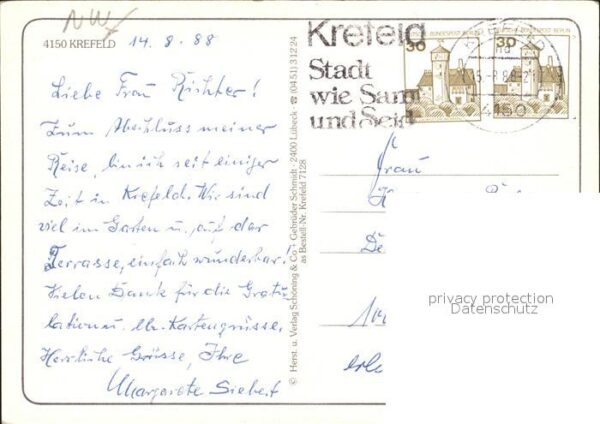 NW
4150 KREFELD 14. 8. 88
Liebe Frau Richter!
Zum Abschluss meiner
Reise, bin ich seit einiger
Zeit in Krefeld. Wir sind
viel im Garten u. auf der
Terrasse, einfach wunderbar.
Vielen Dank für die Gratu
lation u. Kartengrüsse,
Herzliche Grüsse, Ihre
Margarete Siebert
© Herst. u. Verlag Schöning & Co · Gebrüder Schmidt · 2400 Lübeck · ☎ (0451) 31224
as Bestell-Nr. Krefeld 7128
Krefeld
Stadt
wie Samt
und Seide
30
30
4150
Frau
privacy protection
Datenschutz